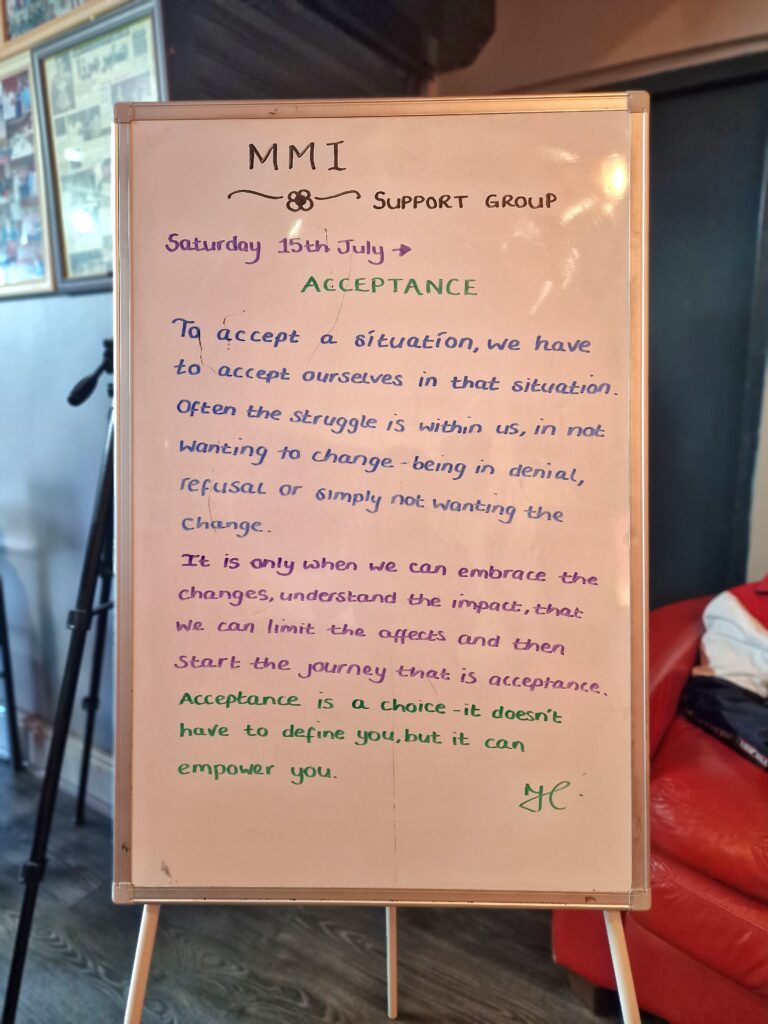 MMI
SUPPORT GROUP
Saturday 15th July →
ACCEPTANCE
To accept a situation, we have
to accept ourselves in that situation.
Often the struggle is within us, in not
wanting to change - being in denial,
refusal or simply not wanting the
change.
It is only when we can embrace the
changes, understand the impact, that
we can limit the affects and then
start the journey that is acceptance.
Acceptance is a choice - it doesn't
have to define you, but it can
empower you.